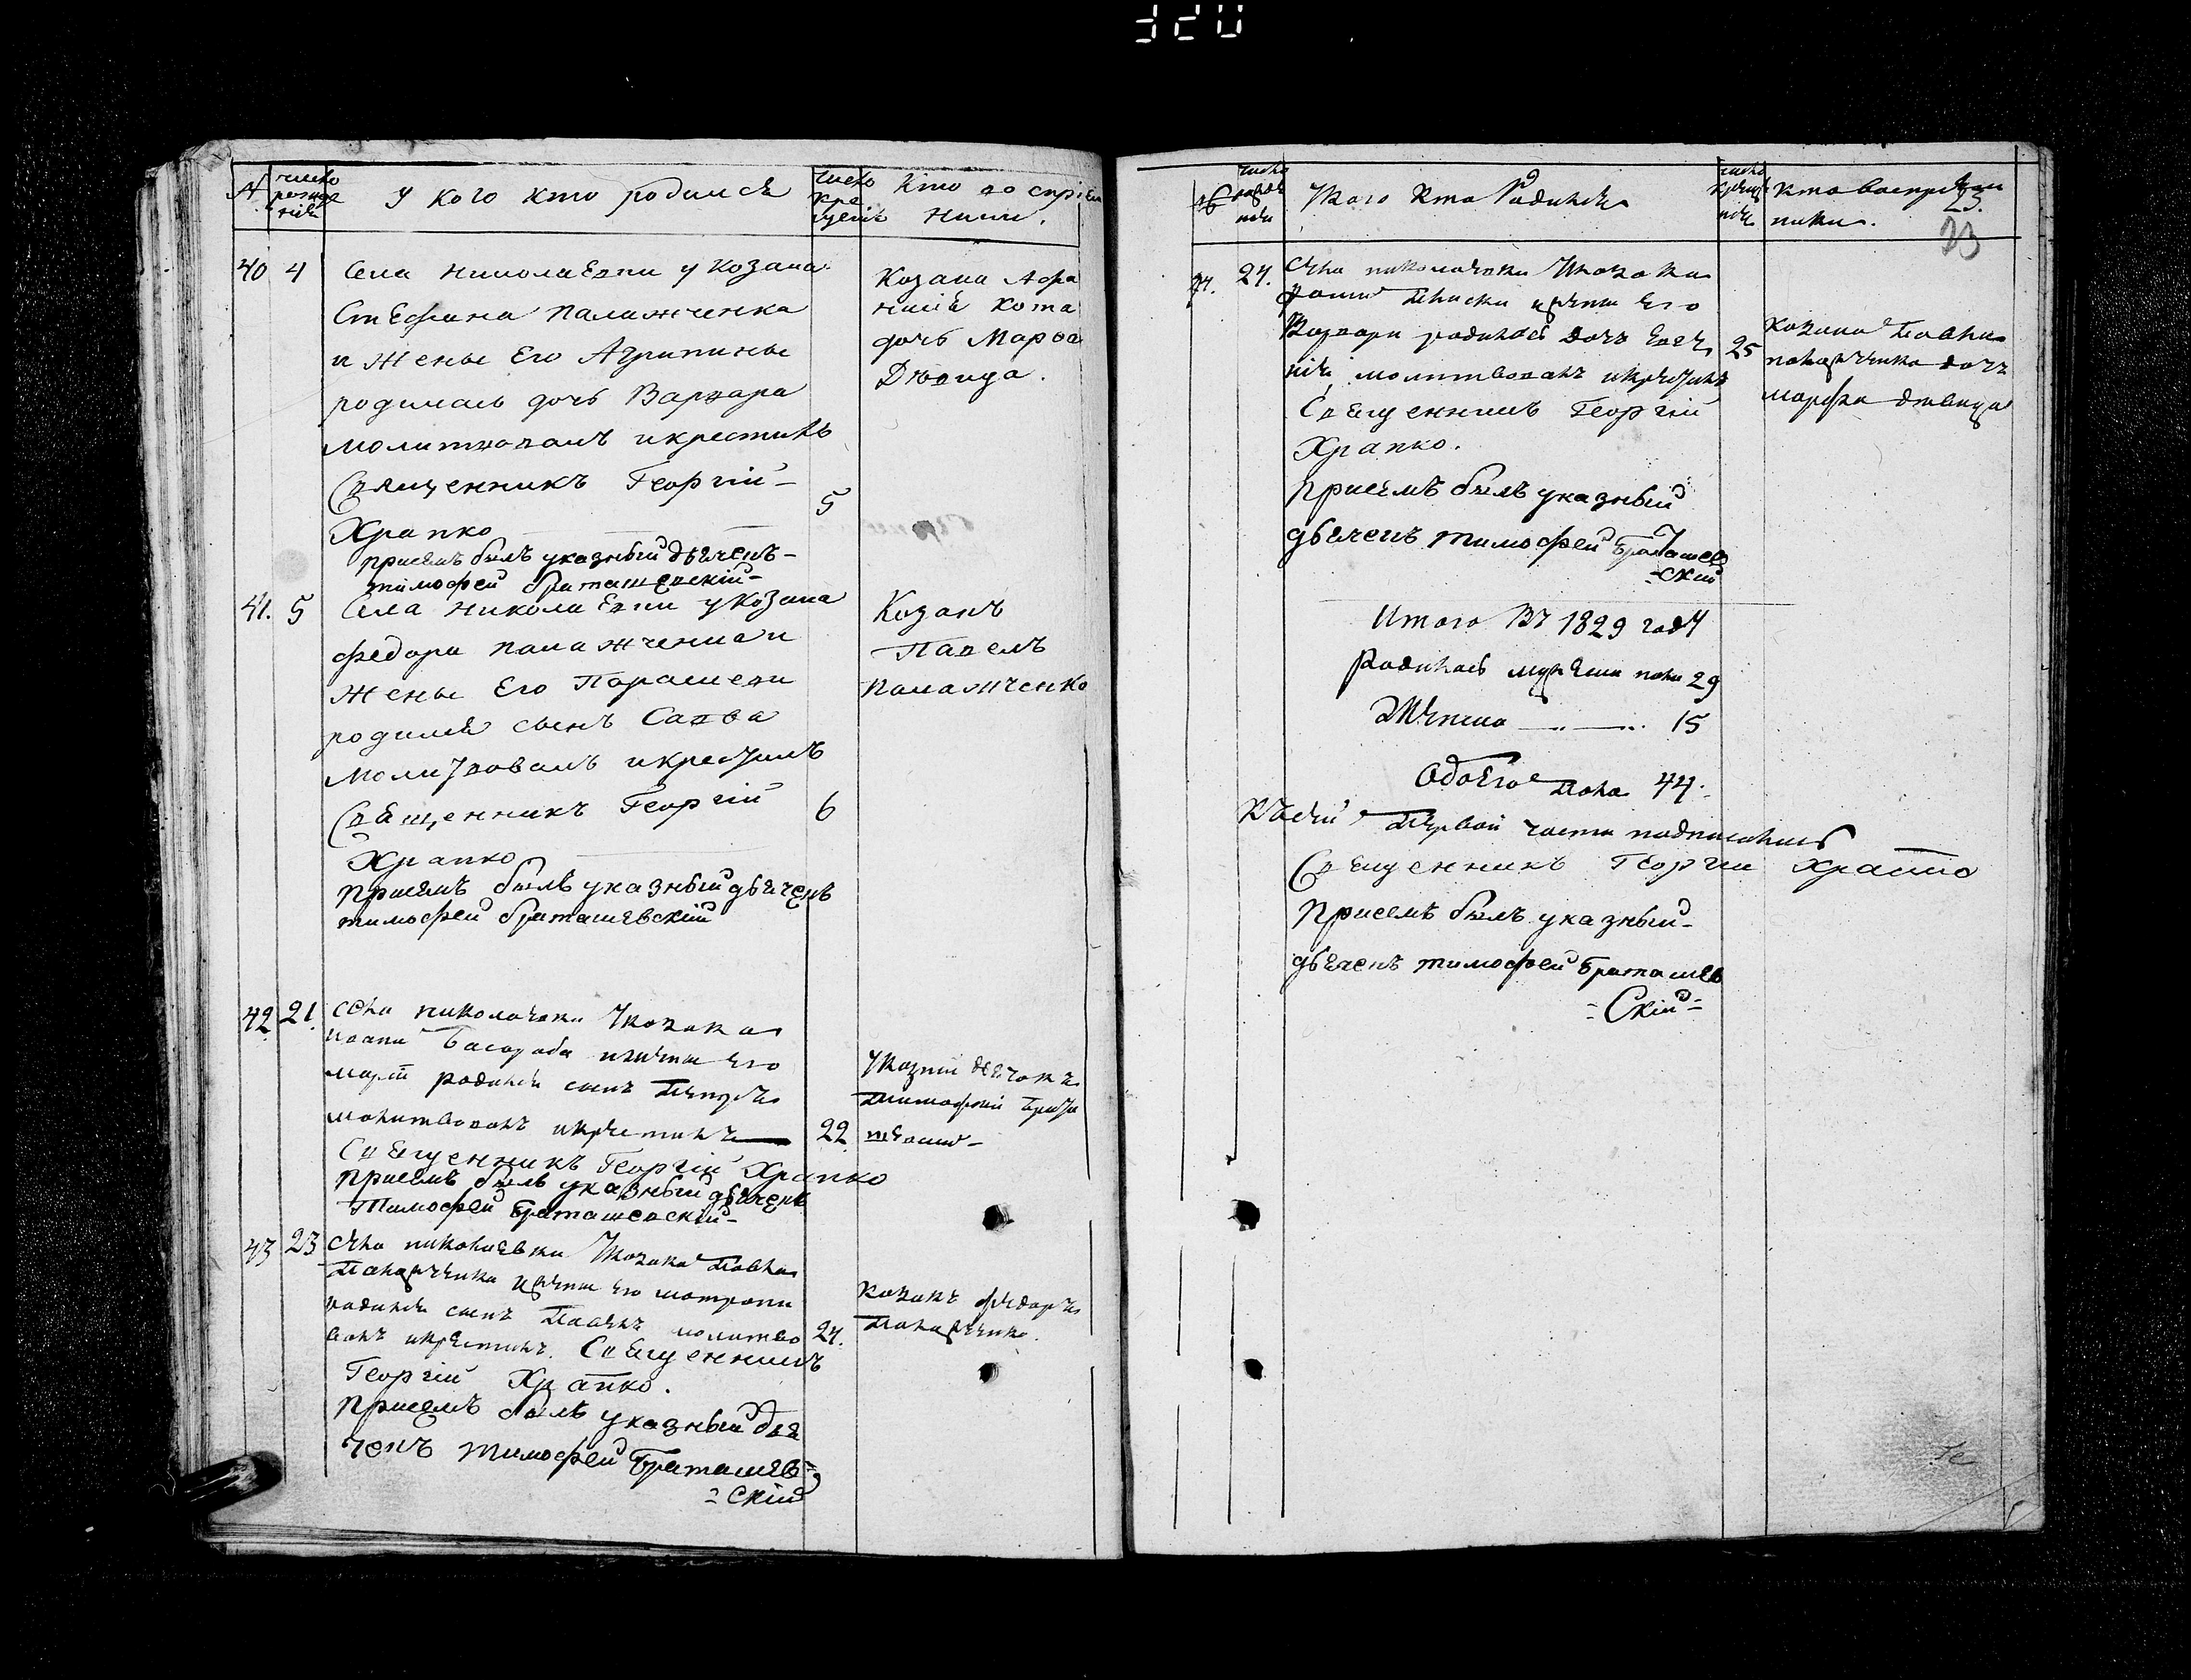 320
№
число рожде нія
у кого кто родился
число кре щенія
кто воспріем ники.
40 4
села николаевки у козака
Стефана паламженка
и жены Его Агрипины
родилась дочь Варвара
молитвовалъ икрестилъ
Священникъ Георгій
5
Храпко
присемъ былъ указный дьячекъ
тимофей браташевскій
Козака Афа
насія кота
дочь Марфа
Дѣвица.
41. 5
села николаевки у козака
федора паламженка и
жены Его Парасковеи
родился сынъ Савва
молитвовалъ икрестилъ
Священникъ Георгій
6
Храпко
присемъ былъ указный дьячекъ
тимофей браташевскій
Козакъ
Павелъ
паламженко
42. 21.
села николаевки укозака
молитвовалъ икрестилъ
22
Священникъ Георгій Храпко
присемъ былъ указный дьячекъ
Тимофей Браташевскій
указній дьячокъ
Тимофей Брата
шевскій
43 23
села николаевки укозака Павла
Паламженка ижены его матроны
родился сынъ Павелъ молитво
24.
валъ икрестилъ. Священникъ
Георгій Храпко.
присемъ былъ указный дья
чекъ тимофей Браташев=
=скій
козакъ федоръ
Паламженко.
№
число рожде нія
Укого кто Родился
число креще нія
кто воспріем ники.
23.
23
44. 24.
села николаевки укозака
ижены его
Варвары родилась дочь Евге
25
нія молитвовалъ икрестилъ
Священникъ Георгій
Храпко.
присемъ былъ указный
дьячекъ тимофей Браташев
=скій
козака Павла
паламженка дочь
марфа дѣвица
Итого въ 1829 году
Родилось мужеска пола 29
Женска 15
Обоего пола 44.
Къ сей Первой части подписались
Священникъ Георгій Храпко
присемъ былъ указный
дьячекъ тимофей Браташев
=Скій=